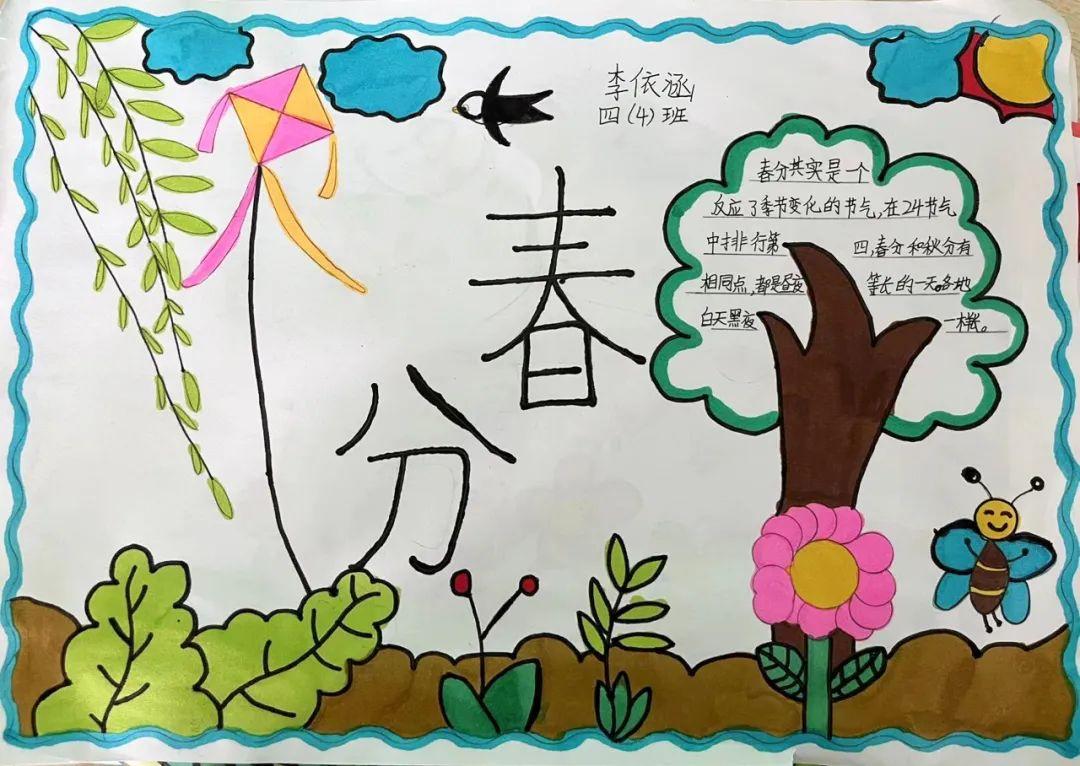 李依涵
四(4)班
春
分
春分其实是一个
反应了季节变化的节气,在24节气
中排行第四,春分和秋分有
相同点,都是昼夜等长的一天。各地
白天黑夜一样长。